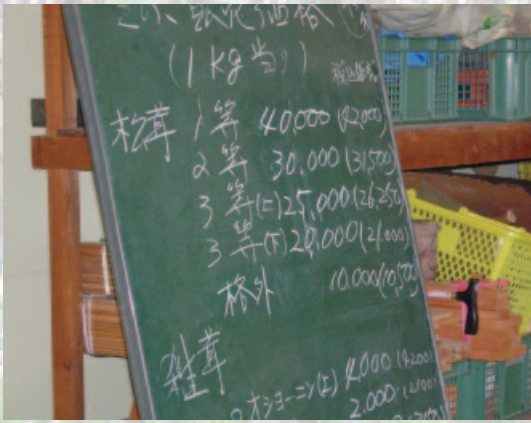 価格
(1kg当り)
松茸 1等 40,000 (42,000)
2等 30,000 (31,500)
3等(上) 25,000 (26,250)
3等(下) 20,000 (21,000)
格外 10.000 (10,500)
雑茸
オショーニン(上) 4,000 (4200)
2.000 (2100)